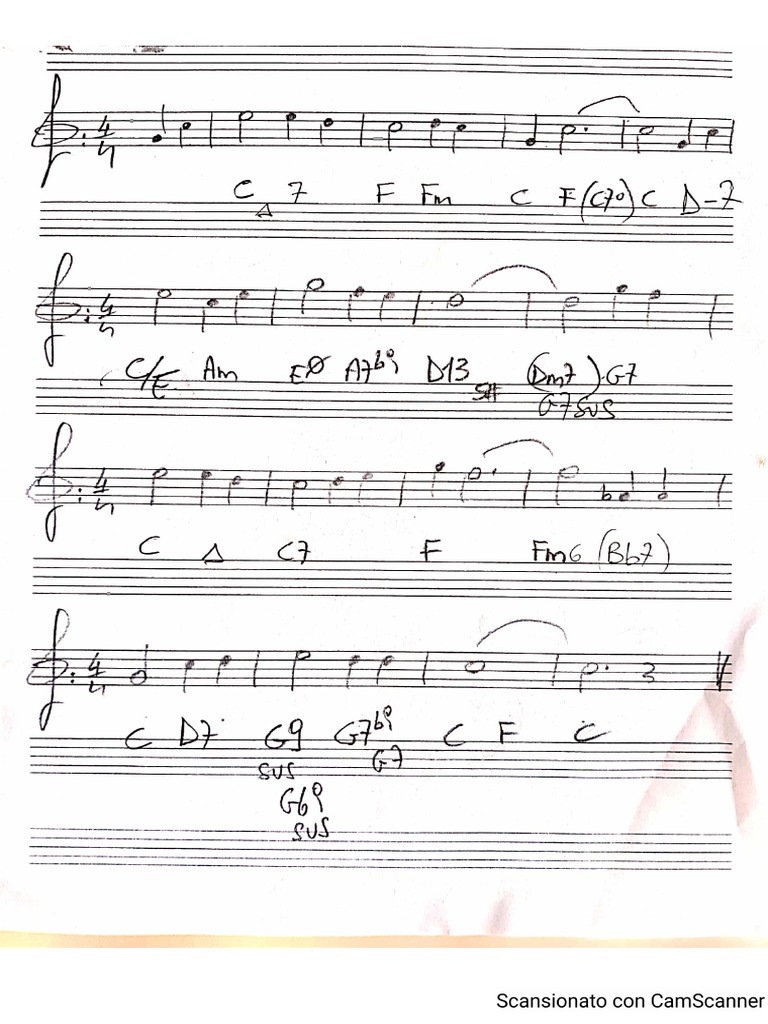 4
4
C 7 F Fm C F (C7°) C D-7
Δ
4
4
C/E Am EØ A7b9 D13 (Dm7) G7
G7SUS
4
4
b
C Δ C7 F Fm6 (Bb7)
4
4
C D7 G9 G7b9 C F C
SUS G7
Gb9
SUS
Scansionato con CamScanner